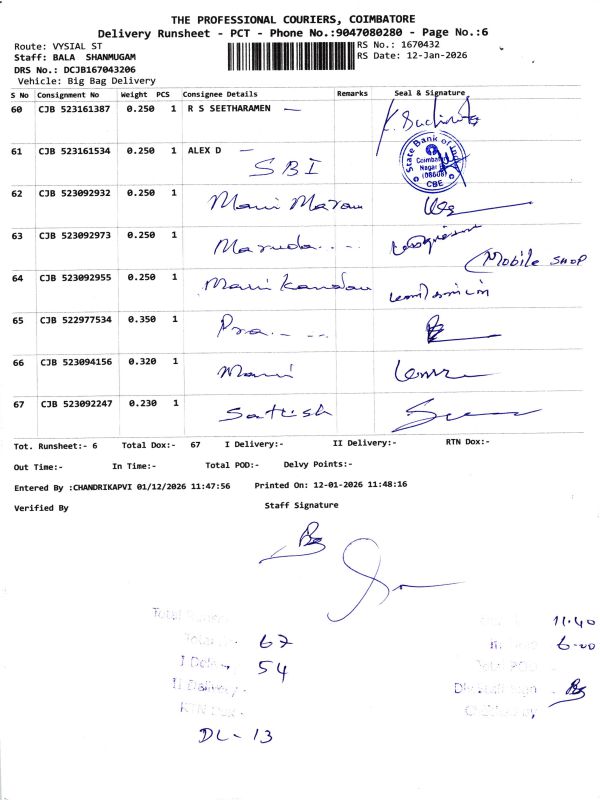 THE PROFESSIONAL COURIERS, COIMBATORE
Delivery Runsheet - PCT - Phone No.:9047080280 - Page No.:6
Route: VYSIAL ST
RS No.: 1670432
Staff: BALA SHANMUGAM
RS Date: 12-Jan-2026
DRS No.: DCJB167043206
Vehicle: Big Bag Delivery
S No Consignment No Weight PCS Consignee Details Remarks Seal & Signature
60 CJB 523161387 0.250 1 R S SEETHARAMEN
61 CJB 523161534 0.250 1 ALEX D
SBI
State Bank of India
Coimbatore
Nagar
(08608)
CBE
62 CJB 523092932 0.250 1 Mani Maran
63 CJB 523092973 0.250 1 Maruda....
Mobile SHOP
64 CJB 523092955 0.250 1 Manikandan
65 CJB 522977534 0.350 1 Pra.- --
66 CJB 523094156 0.320 1 Mani
67 CJB 523092247 0.230 1 Sattish
Tot. Runsheet:- 6 Total Dox:- 67 I Delivery:- II Delivery:- RTN Dox:-
Out Time:- In Time:- Total POD:- Delvy Points:-
Entered By :CHANDRIKAPVI 01/12/2026 11:47:56 Printed On: 12-01-2026 11:48:16
Verified By Staff Signature
Total
11.40
67
6.00
I Delivery
54
II Delivery -
DL - 13